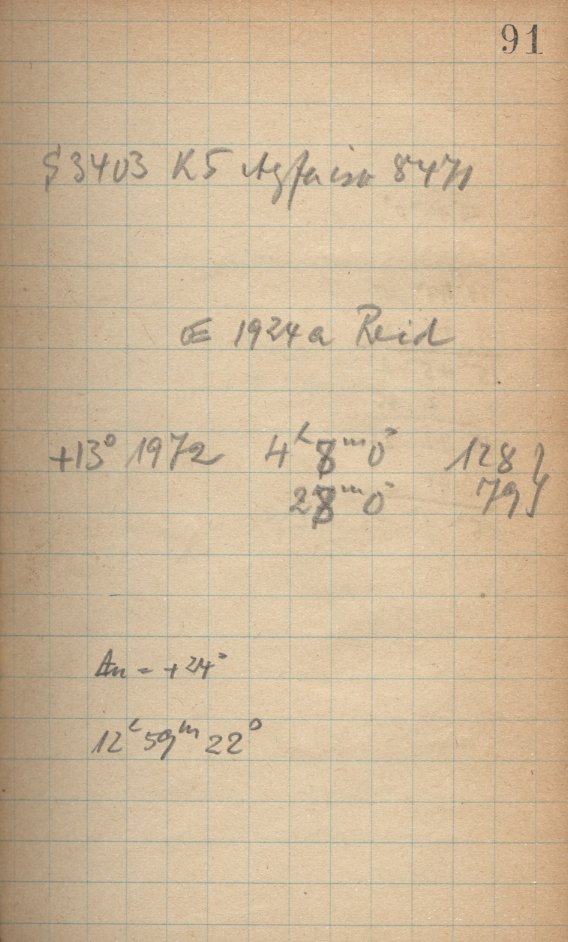 91
3403 K5 Agfa iso 8471
1924a Reid
+13° 1972 4ʰ 8ᵐ 0ˢ 128 }
28ᵐ 0ˢ 79 }
= +24ˢ
12ʰ 59ᵐ 22ˢ